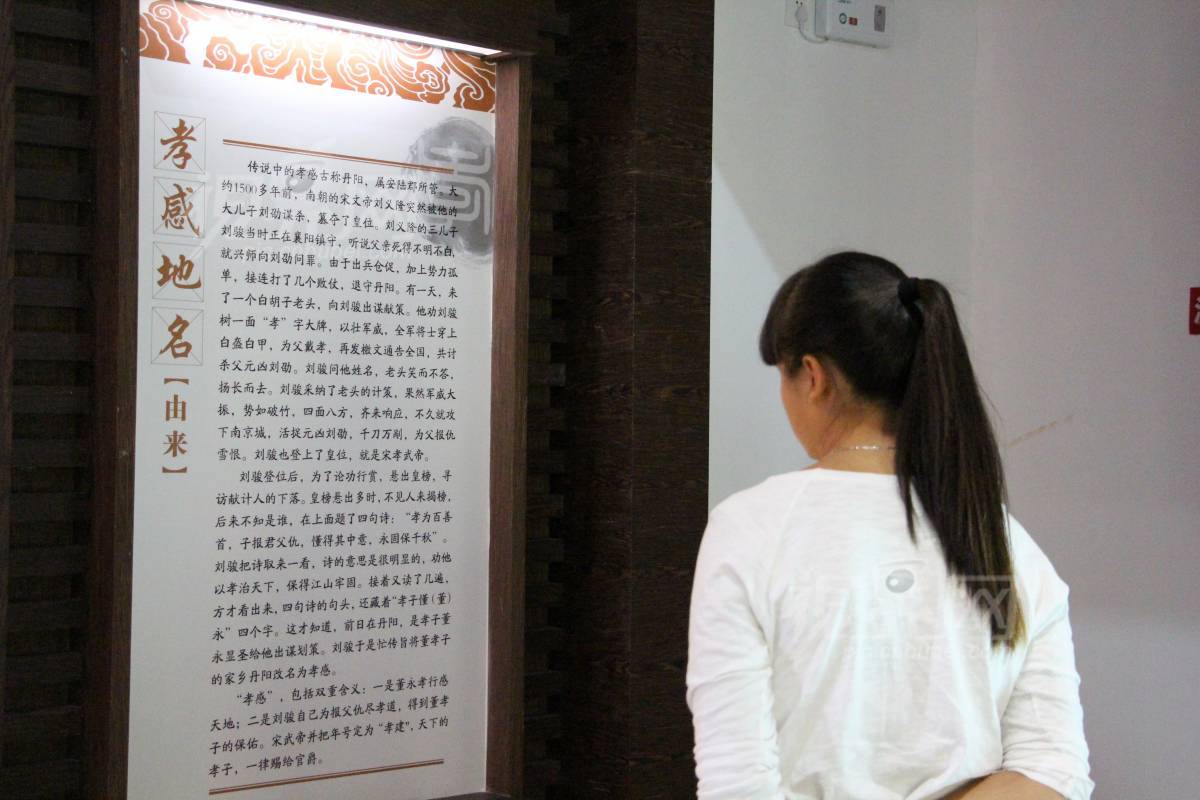 孝感地名
【由来】
传说中的孝感古称丹阳，属安陆郡所管。大
约1500多年前，南朝的宋文帝刘义隆突然被他的
大儿子刘劭谋杀，篡夺了皇位。刘义隆的三儿子
刘骏当时正在襄阳镇守，听说父亲死得不明不白，
就兴师向刘劭问罪。由于出兵仓促，加上势力孤
单，接连打了几个败仗，退守丹阳。有一天，来
了一个白胡子老头，向刘骏出谋献策。他劝刘骏
树一面“孝”字大牌，以壮军威，全军将士穿上
白盔白甲，为父戴孝，再发檄文通告全国，共讨
杀父元凶刘劭。刘骏问他姓名，老头笑而不答，
扬长而去。刘骏采纳了老头的计策，果然军威大
振，势如破竹，四面八方，齐来响应，不久就攻
下南京城，活捉元凶刘劭，千刀万剐，为父报仇
雪恨。刘骏也登上了皇位，就是宋孝武帝。
刘骏登位后，为了论功行赏，悬出皇榜，寻
访献计人的下落。皇榜悬出多时，不见人来揭榜，
后来不知是谁，在上面题了四句诗：“孝为百善
首，子报君父仇，懂得其中意，永固保千秋”。
刘骏把诗取来一看，诗的意思是很明显的，劝他
以孝治天下，保得江山牢固。接着又读了几遍，
方才看出来，四句诗的句头，还藏着“孝子懂（董）
永”四个字。这才知道，前日在丹阳，是孝子董
永显圣给他出谋划策。刘骏于是忙传旨将董孝子
的家乡丹阳改名为孝感。
“孝感”，包括双重含义：一是董永孝行感
天地；二是刘骏自己为报父仇尽孝道，得到董孝
子的保佑。宋武帝并把年号定为“孝建”，天下的
孝子，一律赐给官爵。